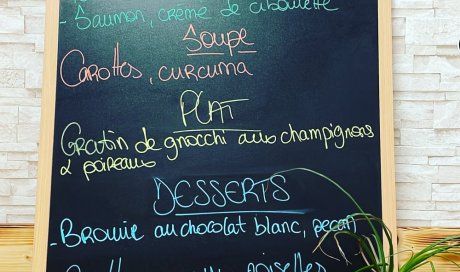 - Saumon, crème de ciboulette
Soupe
Carottes, curcuma
PLAT
Gratin de gnocchi aux champignons
& poireaux
DESSERTS
- Brownie au chocolat blanc, pecan
noisettes